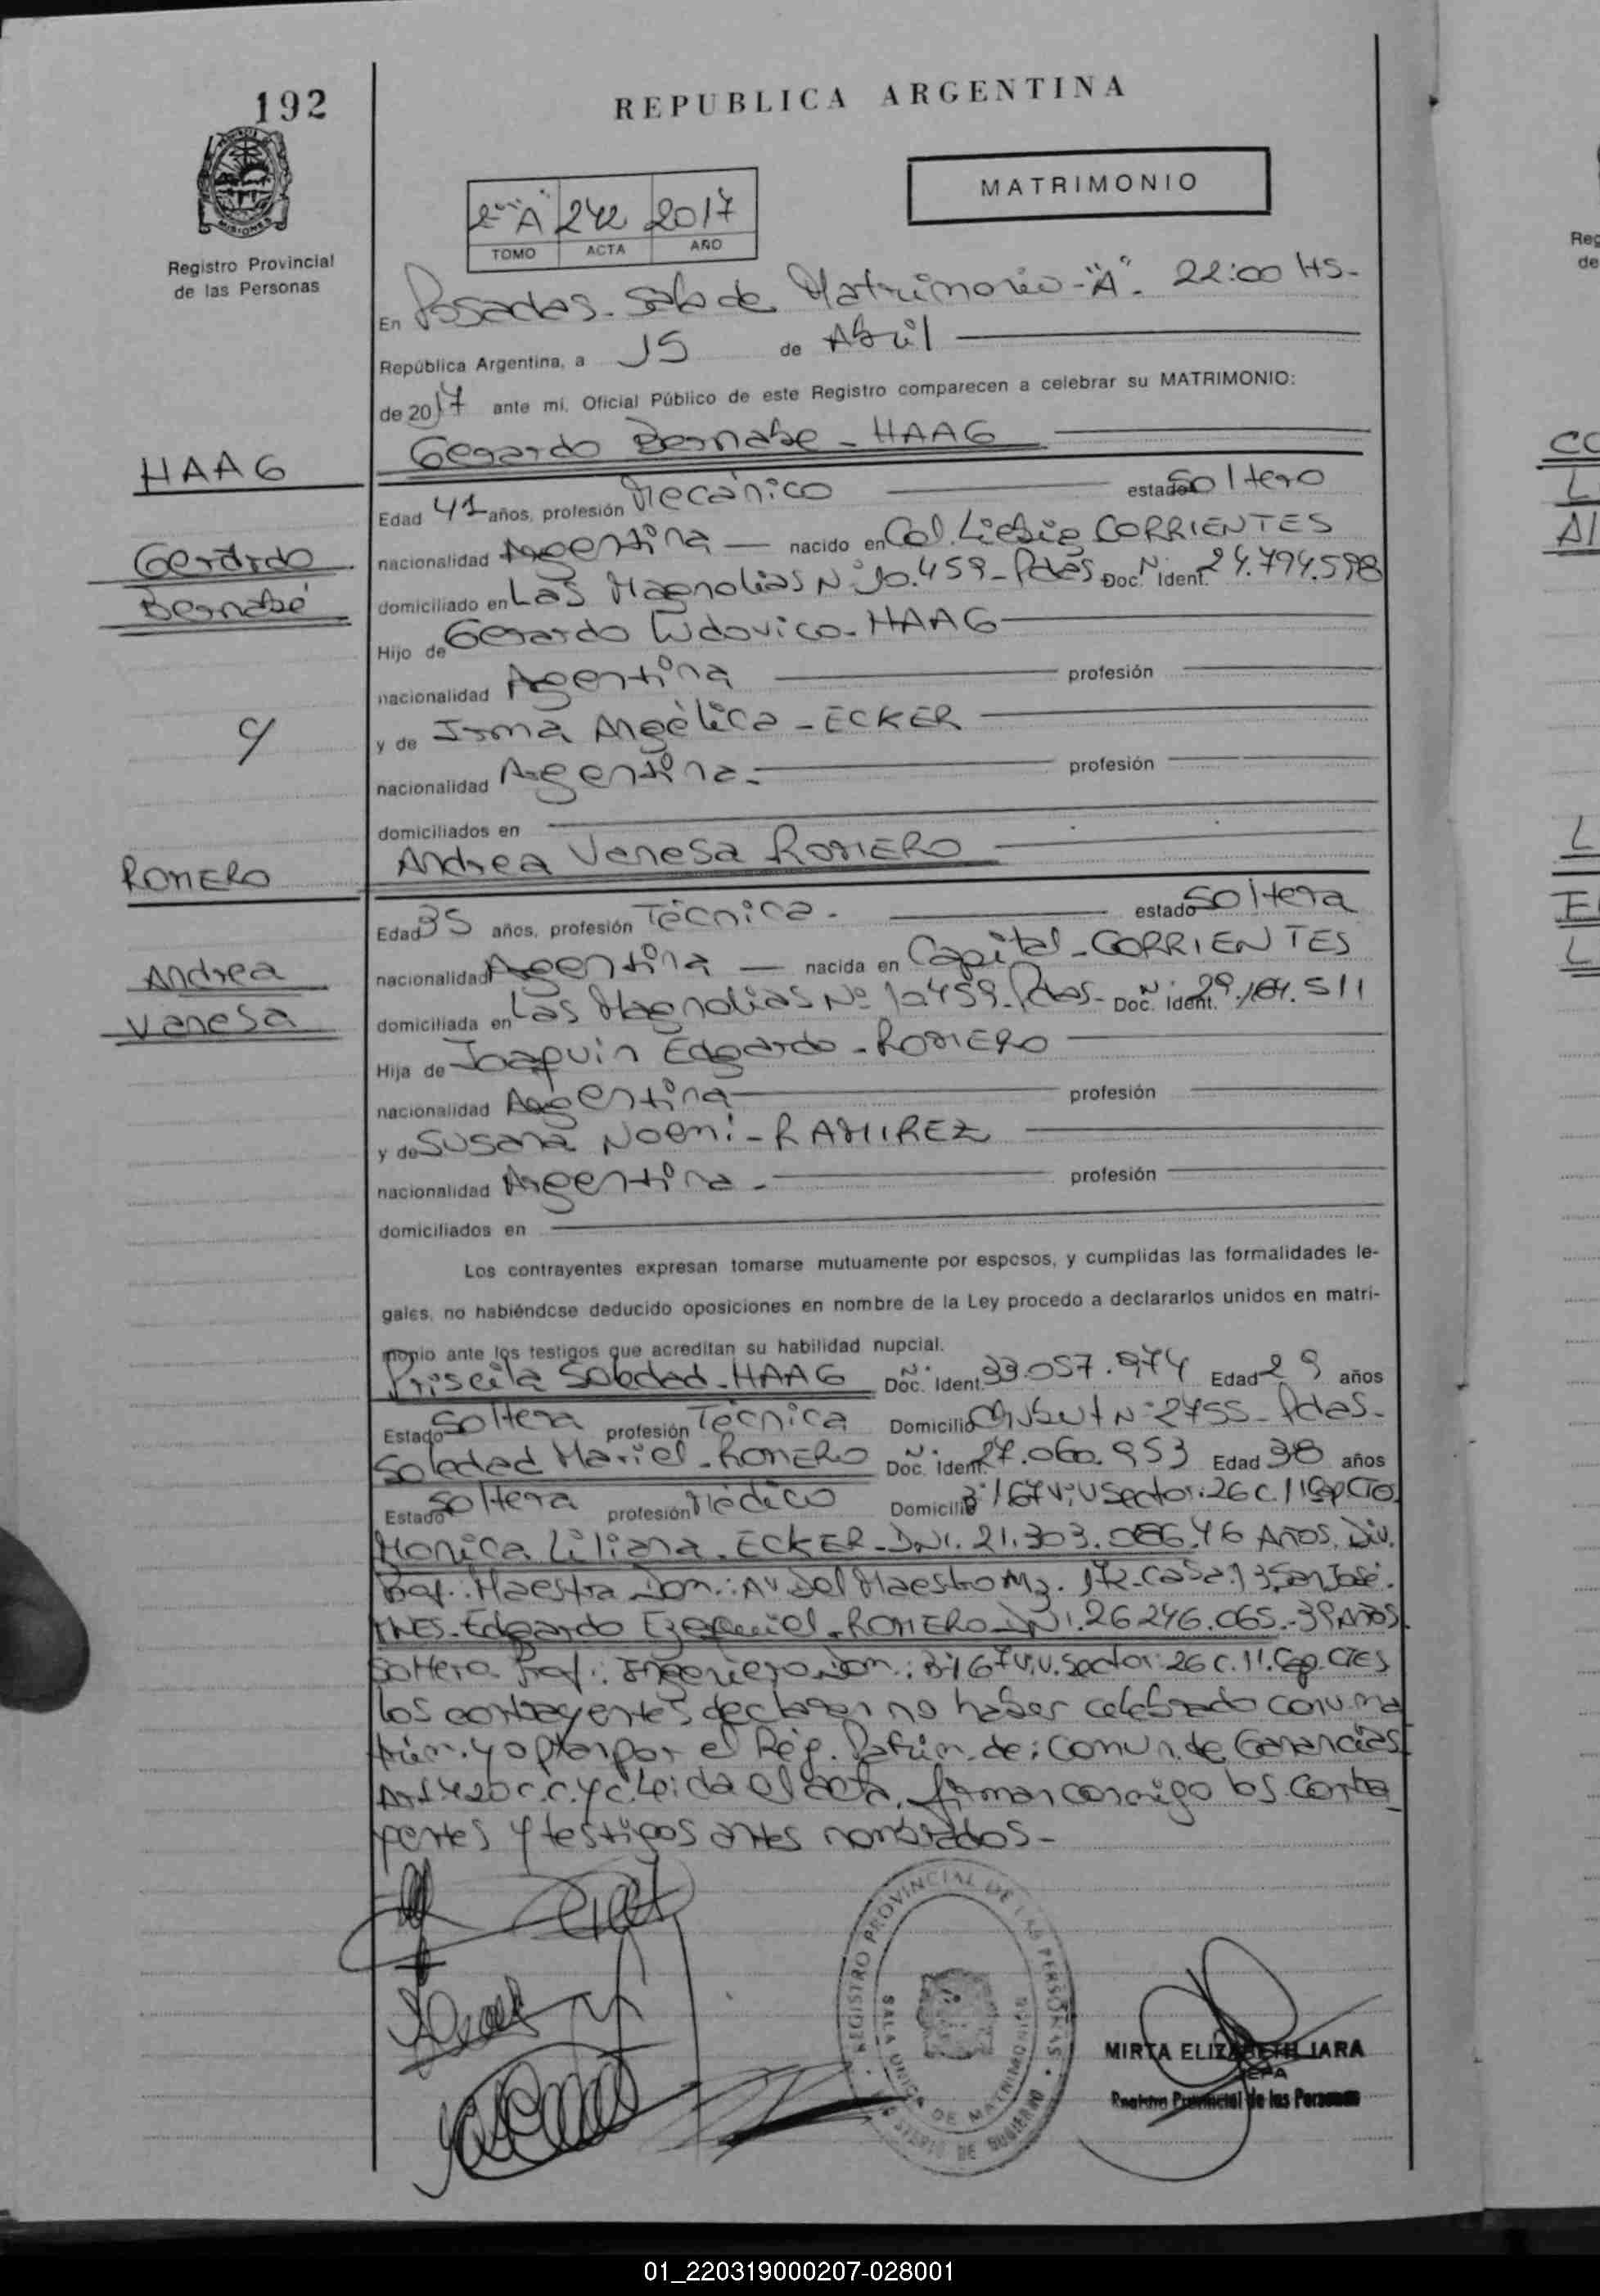 192
REPUBLICA ARGENTINA
MATRIMONIO
2º "A" 242 2017
TOMO ACTA AÑO
Registro Provincial
de las Personas
En Posadas - Sala de Matrimonio - "A" - 22:00 HS -
República Argentina, a 15 de Abril
de 2017 ante mi, Oficial Público de este Registro comparecen a celebrar su MATRIMONIO:
HAAG
Gerardo Bernabe - HAAG
Edad 41 años, profesión Mecánico estado Soltero
Gerardo
nacionalidad Argentina nacido en Col. Liebig CORRIENTES
Bernabé
domiciliado en Las Magnolias Nº 10.459 - Pdas Doc. Nº Ident. 24.794.598
Hijo de Gerardo Ludovico - HAAG
nacionalidad Argentina profesión
y
y de Irma Angélica - ECKER
nacionalidad Argentina - profesión
domiciliados en
ROMERO
Andrea Vanesa ROMERO
Edad 35 años, profesión Técnica - estado Soltera
Andrea
nacionalidad Argentina nacida en Capital - CORRIENTES
Vanesa
domiciliada en Las Magnolias Nº 10459 - Pdas - Doc. Nº Ident. 29. 511
Hija de Joaquin Edgardo - ROMERO
nacionalidad Argentina profesión
y de Susana Noemi - RAMIREZ
nacionalidad Argentina - profesión
domiciliados en
Los contrayentes expresan tomarse mutuamente por esposos, y cumplidas las formalidades le-
gales, no habiéndose deducido oposiciones en nombre de la Ley procedo a declararlos unidos en matri-
monio ante los testigos que acreditan su habilidad nupcial.
Priscila Soledad - HAAG Doc. Nº Ident. 33.057.974 Edad 29 años
Estado Soltera profesión Técnica Domicilio Chubut Nº 2755 - Pdas -
Soledad Mariel - ROMERO Doc. Nº Ident. 27.060.953 Edad 38 años
Estado Soltera profesión Médico Domicilio Bº 167 Viv. Sector: 26 C. 11 Cap CTES
Monica Liliana - ECKER - DNI. 21.303.086. 46 Años. Div.
Prof.: Maestra Dom.: Av Del Maestro Mz. 172 - Casa: 13 San José.
MNES - Edgardo Ezequiel - ROMERO - DNI. 26.246.065. - 39 Años
Soltero Prof.: Ingeniero Dom.: Bº 167 Viv. Sector: 26 C. 11. Cap. CTES
los contrayentes declaran no haber celebrado conv. ma
trim. y optan por el Rég. Patrim. de: Comun. de Ganancias
Art 420 C.C. y C. Leida el acta, firman conmigo los contra
yentes y testigos antes nombrados -
REGISTRO PROVINCIAL DE LAS PERSONAS
SALA UNICA DE MATRIMONIOS
MINISTERIO DE GOBIERNO
MIRTA ELIZABETH JARA
JEFA
Registro Provincial de las Personas
01_220319000207-028001